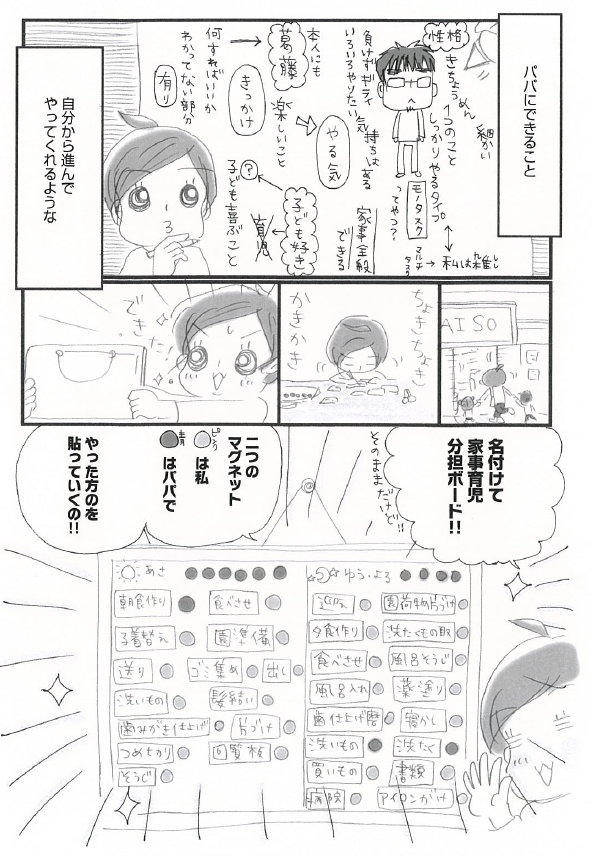 パパにできること
性格
きちょうめん
細かい
1つのこと
しっかりやるタイプ
モノタスク
ってやつ?
マルチ
タスク
→私は雑
負けずギライ
いろいろやりたい
気持ちはある
家事全般
できる
やる気
子ども好き
育児
?
子ども喜ぶこと
楽しいこと
きっかけ
葛藤
本人にも
何すればいーか
わかってない部分
有り
自分から進んで
やってくれるような
AISO
ちょきちょき
かきかき
できた!
名付けて
家事育児
分担ボード!!
そのまま
だけど!!
二つの
マグネット
ピンク
は私
青
はパパで
やった方のを
貼っていくの!!
あさ
朝食作り
食べさせ
子着替え
園準備
送り
ゴミ集め
出し
洗いもの
髪結い
歯みがき仕上げ
片づけ
つめきり
回覧板
そうじ
ゆう・よる
迎え
園荷物片づけ
夕食作り
洗たくもの取
食べさせ
風呂そうじ
風呂入れ
薬塗り
歯仕上げ磨
寝かし
洗いもの
洗たく
買いもの
書類
病院
アイロンがけ